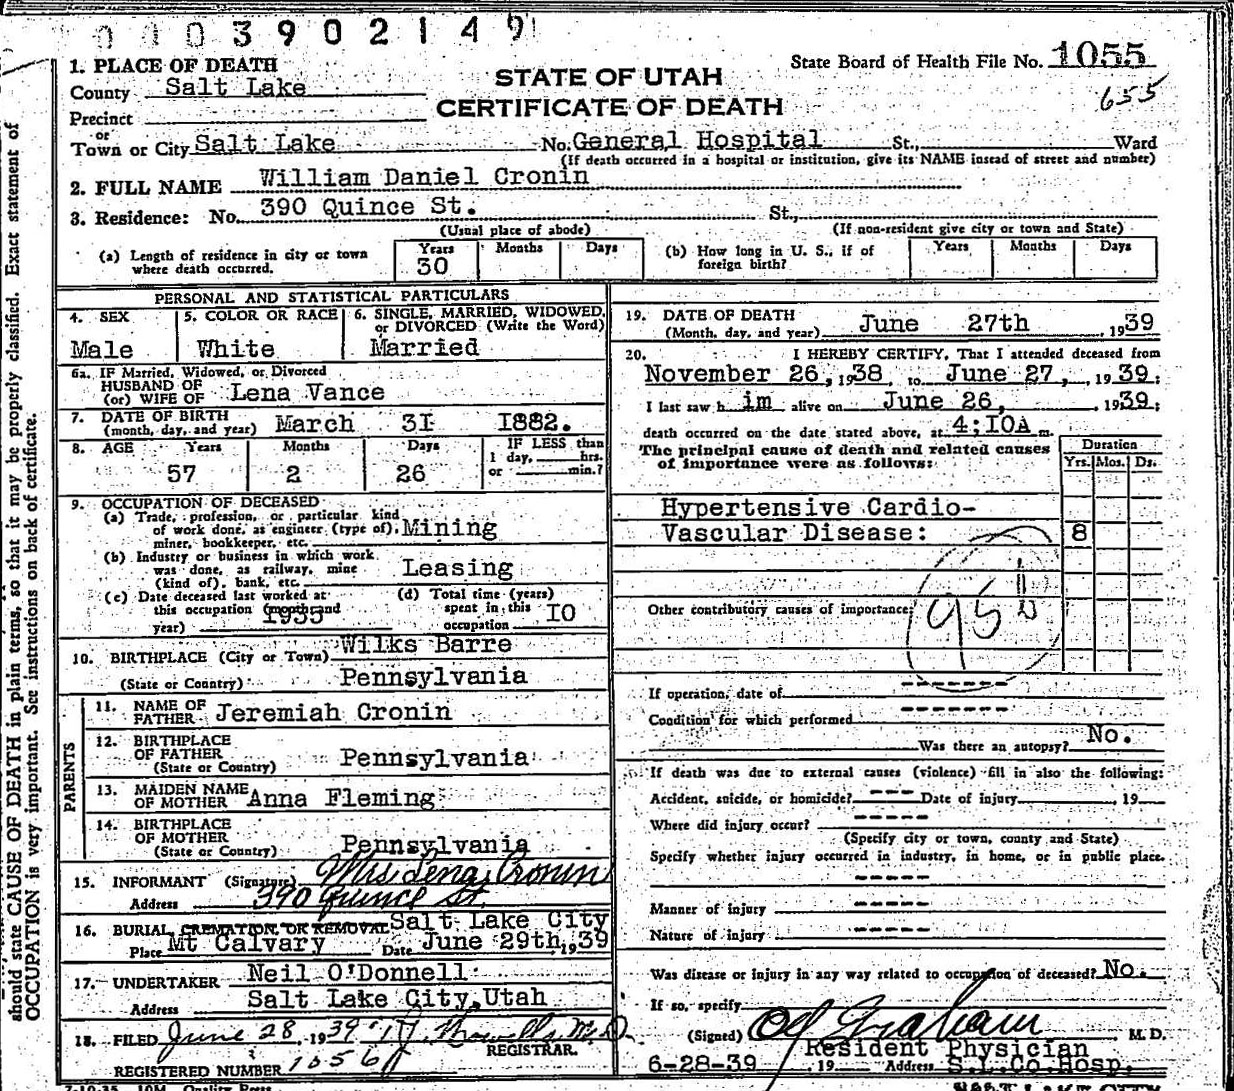 0003902149
State Board of Health File No. 1055
655
STATE OF UTAH
CERTIFICATE OF DEATH
1. PLACE OF DEATH
County Salt Lake
Precinct
or
Town or City Salt Lake No. General Hospital St., Ward
(If death occurred in a hospital or institution, give its NAME insead of street and number)
2. FULL NAME William Daniel Cronin
3. Residence: No. 390 Quince St. St.,
(Usual place of abode) (If non-resident give city or town and State)
(a) Length of residence in city or town where death occurred. Years 30 Months Days
(b) How long in U. S., if of foreign birth? Years Months Days
PERSONAL AND STATISTICAL PARTICULARS
4. SEX Male
5. COLOR OR RACE White
6. SINGLE, MARRIED, WIDOWED, or DIVORCED (Write the Word) Married
6a. IF Married, Widowed, or Divorced
HUSBAND OF
(or) WIFE OF Lena Vance
7. DATE OF BIRTH
(month, day, and year) March 3I I882.
8. AGE Years 57 Months 2 Days 26 IF LESS than 1 day, hrs. or min.?
9. OCCUPATION OF DECEASED
(a) Trade, profession, or particular kind
of work done, as engineer (type of), Mining
miner, bookkeeper, etc.
(b) Industry or business in which work
was done, as railway, mine Leasing
(kind of), bank, etc.
(c) Date deceased last worked at
this occupation (month and
year) 1935
(d) Total time (years)
spent in this
occupation I0
10. BIRTHPLACE (City or Town) Wilks Barre
(State or Country) Pennsylvania
PARENTS
11. NAME OF
FATHER Jeremiah Cronin
12. BIRTHPLACE
OF FATHER
(State or Country) Pennsylvania
13. MAIDEN NAME
OF MOTHER Anna Fleming
14. BIRTHPLACE
OF MOTHER
(State or Country) Pennsylvania
15. INFORMANT (Signature) Mrs. Lena Cronin
Address 390 Quince St.
16. BURIAL, CREMATION, OR REMOVAL Salt Lake City
Place Mt Calvary Date June 29th, 1939
17. UNDERTAKER Neil O'Donnell
Address Salt Lake City, Utah
18. FILED June 28, 1939 M.D.
REGISTRAR.
REGISTERED NUMBER 1056
7-10-35 10M Quality Press
19. DATE OF DEATH
(Month, day, and year) June 27th, 1939
20. I HEREBY CERTIFY, That I attended deceased from
November 26, 1938, to June 27, 1939;
I last saw him alive on June 26, 1939;
death occurred on the date stated above, at 4:I0A m.
The principal cause of death and related causes
of importance were as follows:
Duration
Yrs. Mos. Ds.
Hypertensive Cardio-
Vascular Disease: 8
Other contributory causes of importance:
95
If operation, date of
Condition for which performed
Was there an autopsy? No.
If death was due to external causes (violence) fill in also the following:
Accident, suicide, or homicide? Date of injury , 19
Where did injury occur?
(Specify city or town, county and State)
Specify whether injury occurred in industry, in home, or in public place.
Manner of injury
Nature of injury
Was disease or injury in any way related to occupation of deceased? No.
If so, specify
(Signed) Graham M. D.
Resident Physician
6-28-39 , 19 Address S.L.Co.Hosp.
should state CAUSE OF DEATH in plain terms, so that it may be properly classified. Exact statement of
OCCUPATION is very important. See instructions on back of certificate.